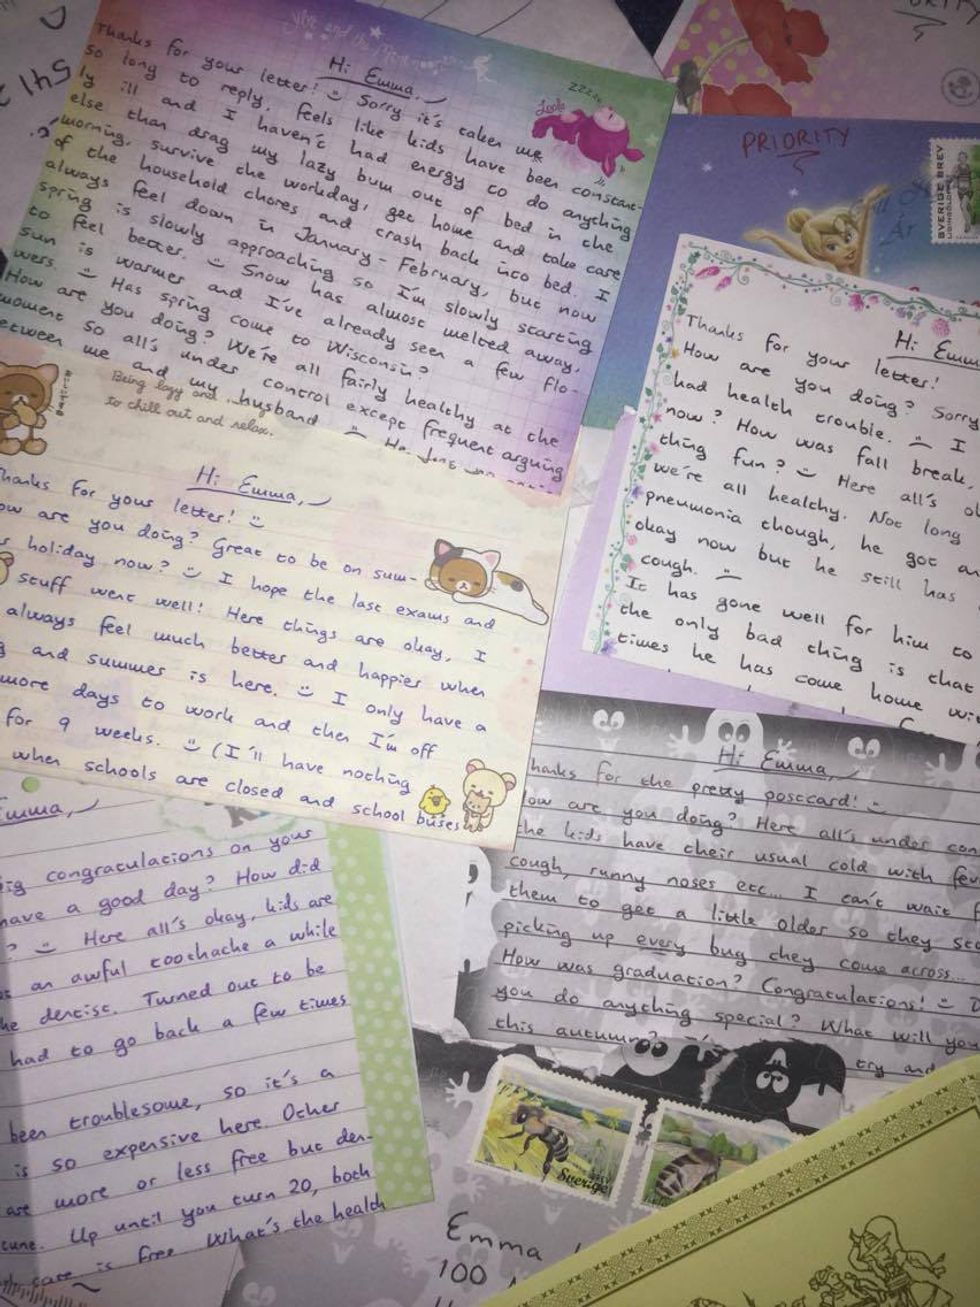 Hi Emma,
Thanks for your letter! Sorry it's taken me
so long to reply. Feels like kids have been constant-
ly ill and I haven't had energy to do anything
else than drag my lazy bum out of bed in the
morning, survive the workday, get home and take care
of the household chores and crash back into bed. I
always feel down in January - February, but now
spring is slowly approaching so I'm slowly starting
to feel better. Snow has almost melted away,
sun is warmer and I've already seen a few flo-
wers. Has spring come to Wisconsin?
How are you doing? We're all fairly healthy at the
moment so all's under control except frequent arguing
between me and my husband
zzzz
PRIORITY
SVERIGE BREV
Hi Emm
Thanks for your letter!
How are you doing? Sorry
had health trouble. I
now? How was fall break,
thing fun? Here all's ok
we're all healthy. Not long
pneumonia though, he got an
okay now but he still has
cough.
It has gone well for him to
the only bad thing is that
times he has come home wi
Being lazy and
to chill out and relax.
Hi Emma,
Thanks for your letter!
ow are you doing? Great to be on sum-
holiday now? I hope the last exams and
stuff went well! Here things are okay, I
always feel much better and happier when
and summer is here. I only have a
more days to work and then I'm off
for 9 weeks. (I'll have nothing
when schools are closed and school buses
Hi Emma,
hanks for the pretty postcard!
ow are you doing? Here all's under con
the kids have their usual cold with fev
cough, runny noses etc... I can't wait f
them to get a little older so they sto
picking up every bug they come across...
How was graduation? Congratulations!
you do anything special? What will you
this autumn?
try and
Emma,
ig congratulations on your
have a good day? How did
? Here all's okay, kids are
an awful toothache a while
he dentist. Turned out to be
had to go back a few times
been troublesome, so it's a
is so expensive here. Other
are more or less free but den-
tune. Up until you turn 20, both
care is free. What's the health
Sverige
Emma
100